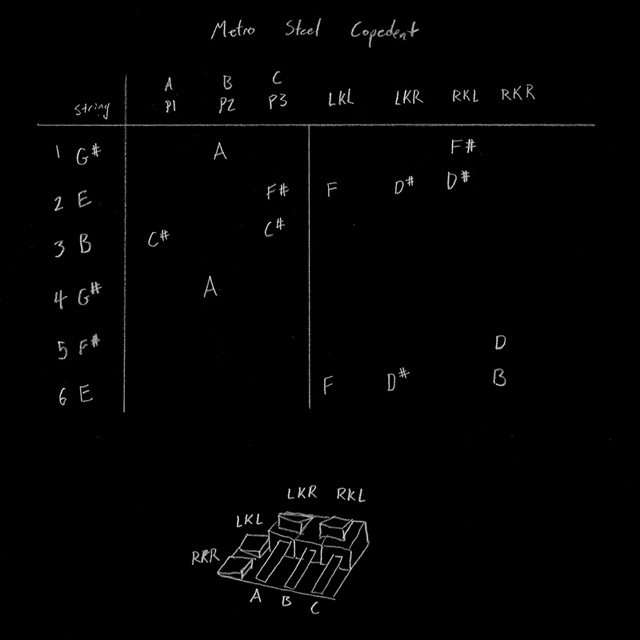 Metro Steel Copedent
A B C
String P1 P2 P3 LKL LKR RKL RKR
1 G# A F#
2 E F# F D# D#
3 B C# C#
4 G# A
5 F# D
6 E F D# B
LKR RKL
LKL
RKR
A B C